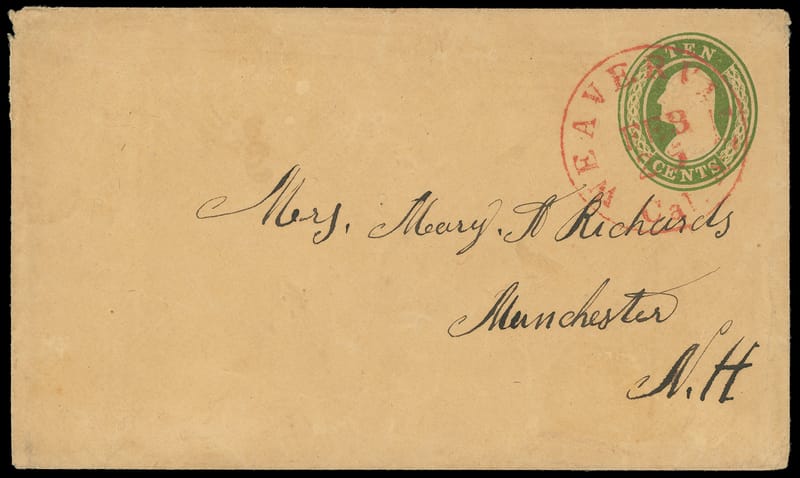 TEN
CENTS
WEAVER
Cal.
Mrs. Mary. A Richards
Manchester
N.H